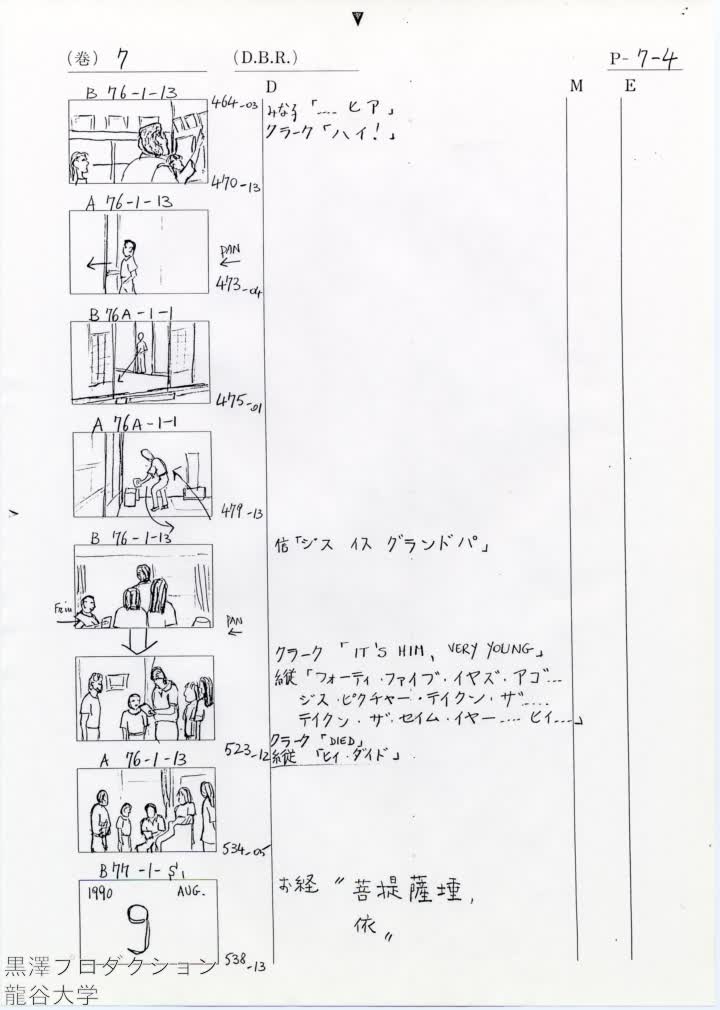 (巻) 7
(D.B.R.)
P- 7-4
D
M
E
B 76-1-13
464-03
みな子「.... ヒア」
クラーク「ハイ!」
470-13
A 76-1-13
PAN
473-04
B 76A-1-1
475-01
A 76A-1-1
479-13
B 76-1-13
信「ジス イス グランドパ」
PAN
クラーク 「IT'S HIM, VERY YOUNG」
縦「フォーティ・ファイブ・イヤズ・アゴ....
ジス・ピクチャー・テイクン・ザ.....
テイクン・ザ・セイム・イヤー.... ヒィ....」
523-12
クラーク「DIED」
縦「ヒィ・ダイド」
A 76-1-13
534-05
B 77-1-S1
お経〝菩提薩埵,
依〟
1990 AUG.
9
538-13
黒澤プロダクション
龍谷大学